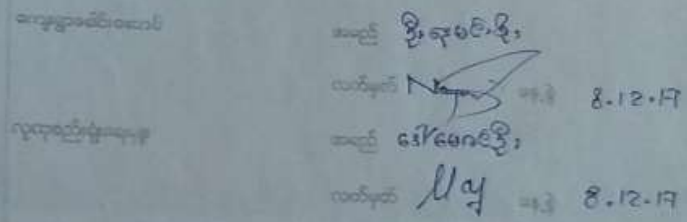 ကျေးရွာခေါင်းဆောင် အမည် ဦးရဲမင်းစိုး
လက်မှတ် နေ့စွဲ 8.12.17
လူထုစည်းရုံးရေးမှူး အမည် ဒေါ်မေဇင်ဦး
လက်မှတ် My နေ့စွဲ 8.12.17